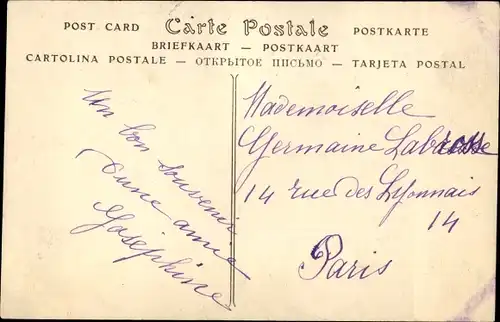 POST CARD Carte Postale POSTKARTE
BRIEFKAART — POSTKAART
CARTOLINA POSTALE — ОТКРЫТОЕ ПИСЬМО — TARJETA POSTAL
Un bon souvenir
d'une amie
Joséphine
Mademoiselle
Germaine Labrosse
14 rue des Lyonnais
14
Paris